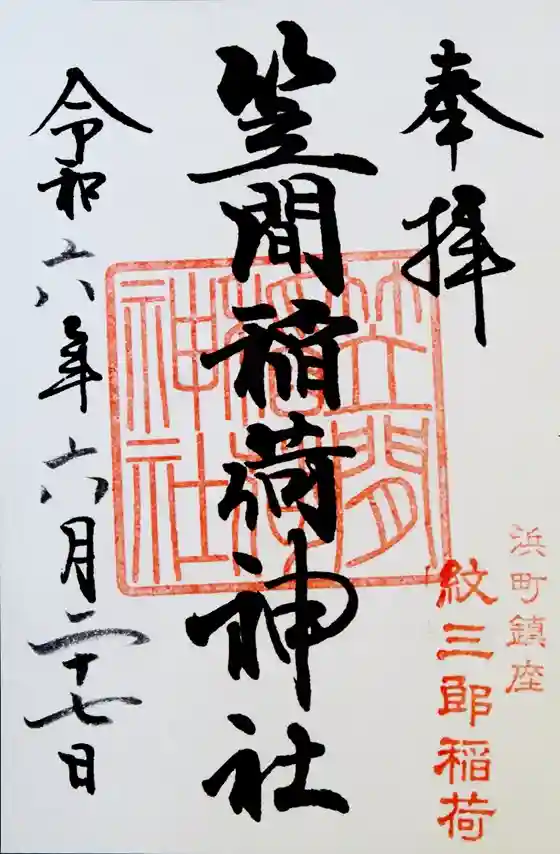 奉拝
浜町鎮座
紋三郎稲荷
笠間稲荷神社
笠間
稲荷
神社
令和六年六月二十七日